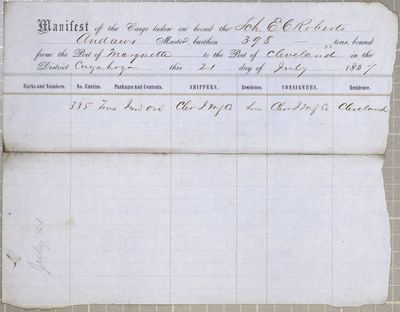 Manifest of the Cargo laden on board the Sch. E C Roberts
Andrews Master, burthen 398 95 tons, bound
from the Port of Marquette to the Port of Cleveland in the
District Cuyahoga this 21 day of July 1857
Marks and Numbers. No. Entries. Packages and Contents. SHIPPERS. Residence. CONSIGNEES. Residence.
335 Tons Iron ore Clev I M g Co Clev I M g Co Cleveland
July 21